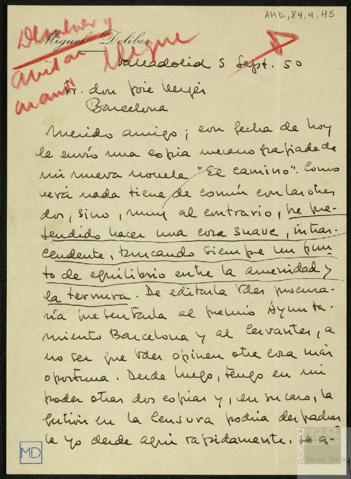 AMD,84,4,45
Devolver y
Miguel Delibes
Valladolid 5 Sept. 50
Sr. don José Vergés
Barcelona
Querido amigo; con fecha de hoy
le envío una copia mecanografiada de
mi nueva novela "El camino". Como
verá nada tiene de común con las otras
dos, sino, muy al contrario, he pre-
tendido hacer una cosa suave, intras-
cendente, buscando siempre un pun-
to de equilibrio entre la amenidad y
la ternura. De editarla Vdes procura-
ría presentarla al premio Ayunta-
miento Barcelona y al Cervantes, a
no ser que Vdes opinen otra cosa más
oportuna. Desde luego, tengo en mi
poder otras dos copias y, en su caso, la
gestión en la Censura podría despachar
la yo desde aquí rapidamente. Le a-
MD